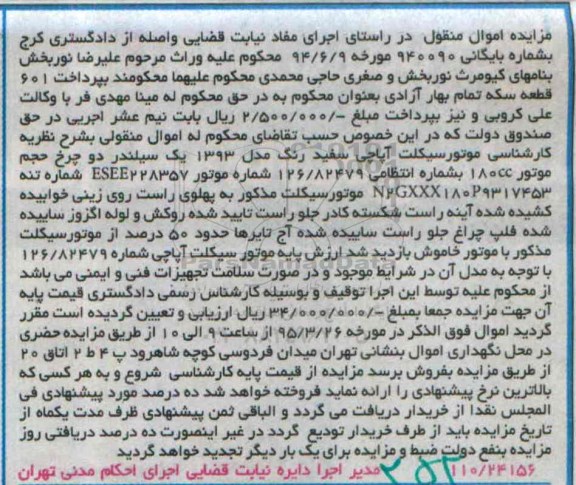 مزایده اموال منقول در راستای اجرای مفاد نیابت قضایی واصله از دادگستری کرج
بشماره بایگانی ۹۴۰۰۹۰ مورخه ۹۴/۶/۹ محکوم علیه وراث مرحوم علیرضا نوربخش
بنامهای کیومرث نوربخش و صغری حاجی محمدی محکوم علیهما محکومند بپرداخت ۶۰۱
قطعه سکه تمام بهار آزادی بعنوان محکوم به در حق محکوم له مینا مهدی فر با وکالت
علی کروبی و نیز بپرداخت مبلغ -/۲/۵۰۰/۰۰۰ ریال بابت نیم عشر اجرایی در حق
صندوق دولت که در این خصوص حسب تقاضای محکوم له اموال منقولی بشرح نظریه
کارشناسی موتورسیکلت آپاچی سفید رنگ مدل ۱۳۹۳ یک سیلندر دو چرخ حجم
موتور ۱۸۰cc بشماره انتظامی ۱۲۶/۸۲۴۷۹ شماره موتور ESEE۲۲۸۳۵۷ شماره تنه
N۲GXXX۱۸۰P۹۳۱۷۴۵۳ موتورسیکلت مذکور به پهلوی راست روی زینی خوابیده
کشیده شده آینه راست شکسته کادر جلو راست تایید شده روکش و لوله اگزوز ساییده
شده فلپ چراغ جلو راست ساییده شده آج تایرها حدود ۵۰ درصد از موتورسیکلت
مذکور با موتور خاموش بازدید شد ارزش پایه موتور سیکلت آپاچی شماره ۱۲۶/۸۲۴۷۹
با توجه به مدل آن در شرایط موجود و در صورت سلامت تجهیزات فنی و ایمنی می باشد
از محکوم علیه توسط این اجرا توقیف و بوسیله کارشناس رسمی دادگستری قیمت پایه
آن جهت مزایده جمعا بمبلغ -/۳۴/۰۰۰/۰۰۰ ریال ارزیابی و تعیین گردیده است مقرر
گردید اموال فوق الذکر در مورخه ۹۵/۳/۲۶ از ساعت ۹ الی ۱۰ از طریق مزایده حضری
در محل نگهداری اموال بنشانی تهران میدان فردوسی کوچه شاهرود پ ۴ ط ۲ اتاق ۲۰
از طریق مزایده بفروش برسد مزایده از قیمت پایه کارشناسی شروع و به هر کسی که
بالاترین نرخ پیشنهادی را ارائه نماید فروخته خواهد شد ده درصد مورد پیشنهادی فی
المجلس نقدا از خریدار دریافت می گردد و الباقی ثمن پیشنهادی ظرف مدت یکماه از
تاریخ مزایده باید از طرف خریدار تودیع گردد در غیر اینصورت ده درصد دریافتی روز
مزایده بنفع دولت ضبط و مزایده برای یک بار دیگر تجدید خواهد گردید
۱۱۰/۲۴۱۵۶ مدیر اجرا دایره نیابت قضایی اجرای احکام مدنی تهران